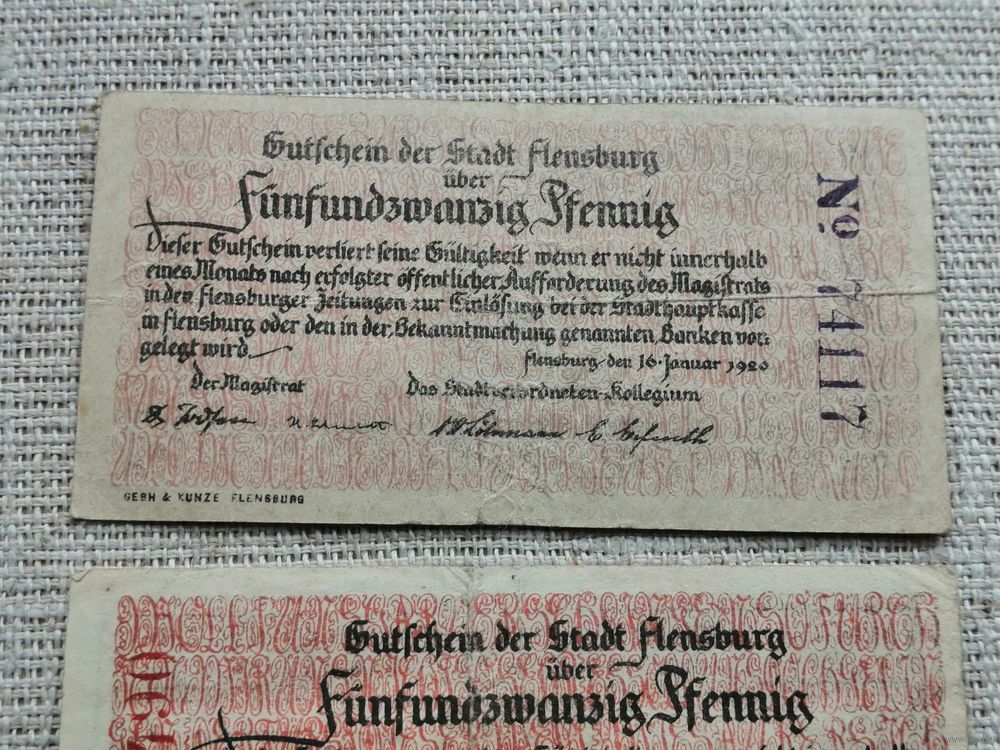 Gutschein der Stadt Flensburg
über
Fünfundzwanzig Pfennig
Dieser Gutschein verliert seine Gültigkeit wenn er nicht innerhalb
eines Monats nach erfolgter öffentlicher Aufforderung des Magistrats
in den Flensburger Zeitungen zur Einlösung bei der Stadthauptkasse
in Flensburg oder den in der Bekanntmachung genannten Banken vor-
gelegt wird.
Flensburg den 16. Januar 1920
Der Magistrat Das Stadtverordneten-Kollegium
No 74117
GEBH & KUNZE FLENSBURG
Gutschein der Stadt Flensburg
über
Fünfundzwanzig Pfennig